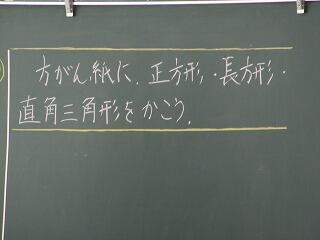 方がん紙に、正方形・長方形・
直角三角形をかこう。